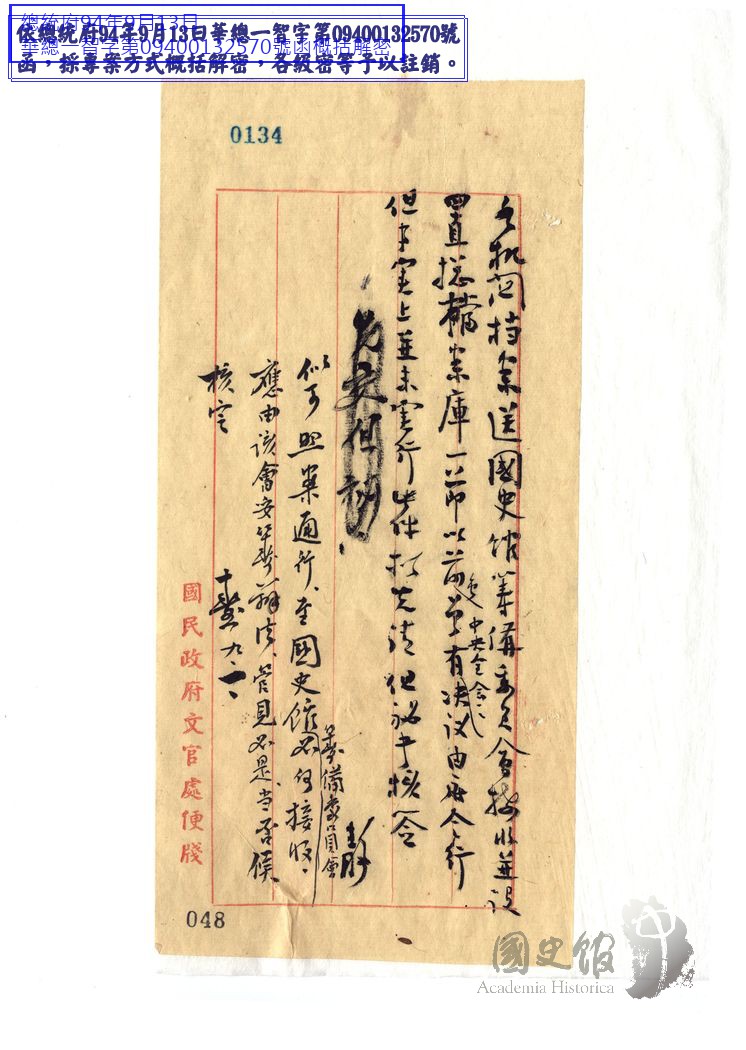 總統府94年9月13日
華總一智字第09400132570號函概括解密
依總統府94年9月13日華總一智字第09400132570號
函,採專案方式概括解密,各級密等予以註銷。
0134
各机關档案送國史館籌備委員會接收並设
四直揔檔案庫一节以前曾有决议由府令行
迄中央全会
但事实上並未實行此件拟先請但祕书核签
先交但祕
似可照案通行、至國史館如何接收、
籌備委員會
應由該會妥筹辦法、管見如是、当否候
核定
九、一、
國民政府文官處便牋
048
國史館
Academia Historica